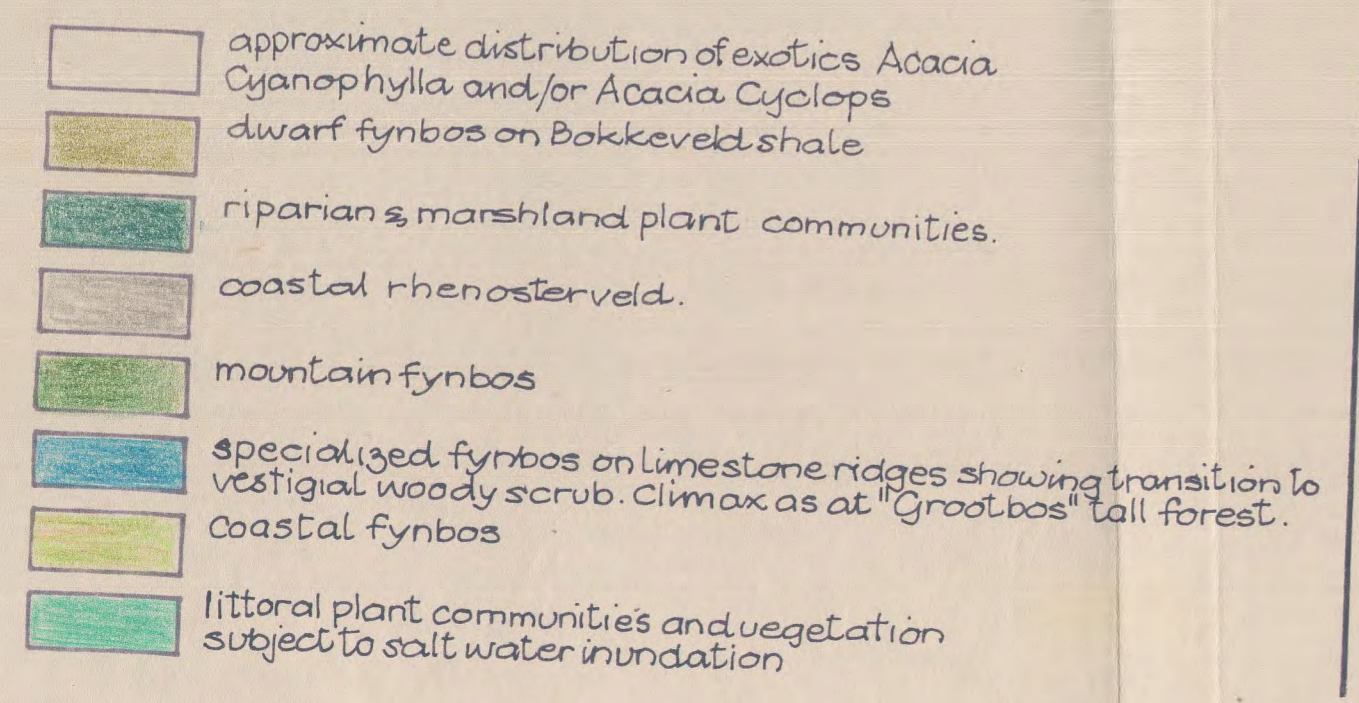 approximate distribution of exotics Acacia
Cyanophylla and/or Acacia Cyclops
dwarf fynbos on Bokkeveld shale
riparian & marshland plant communities.
coastal rhenosterveld.
mountain fynbos
specialized fynbos on limestone ridges showing transition to
vestigial woody scrub. Climax as at "Grootbos" tall forest.
coastal fynbos
littoral plant communities and vegetation
subject to salt water inundation